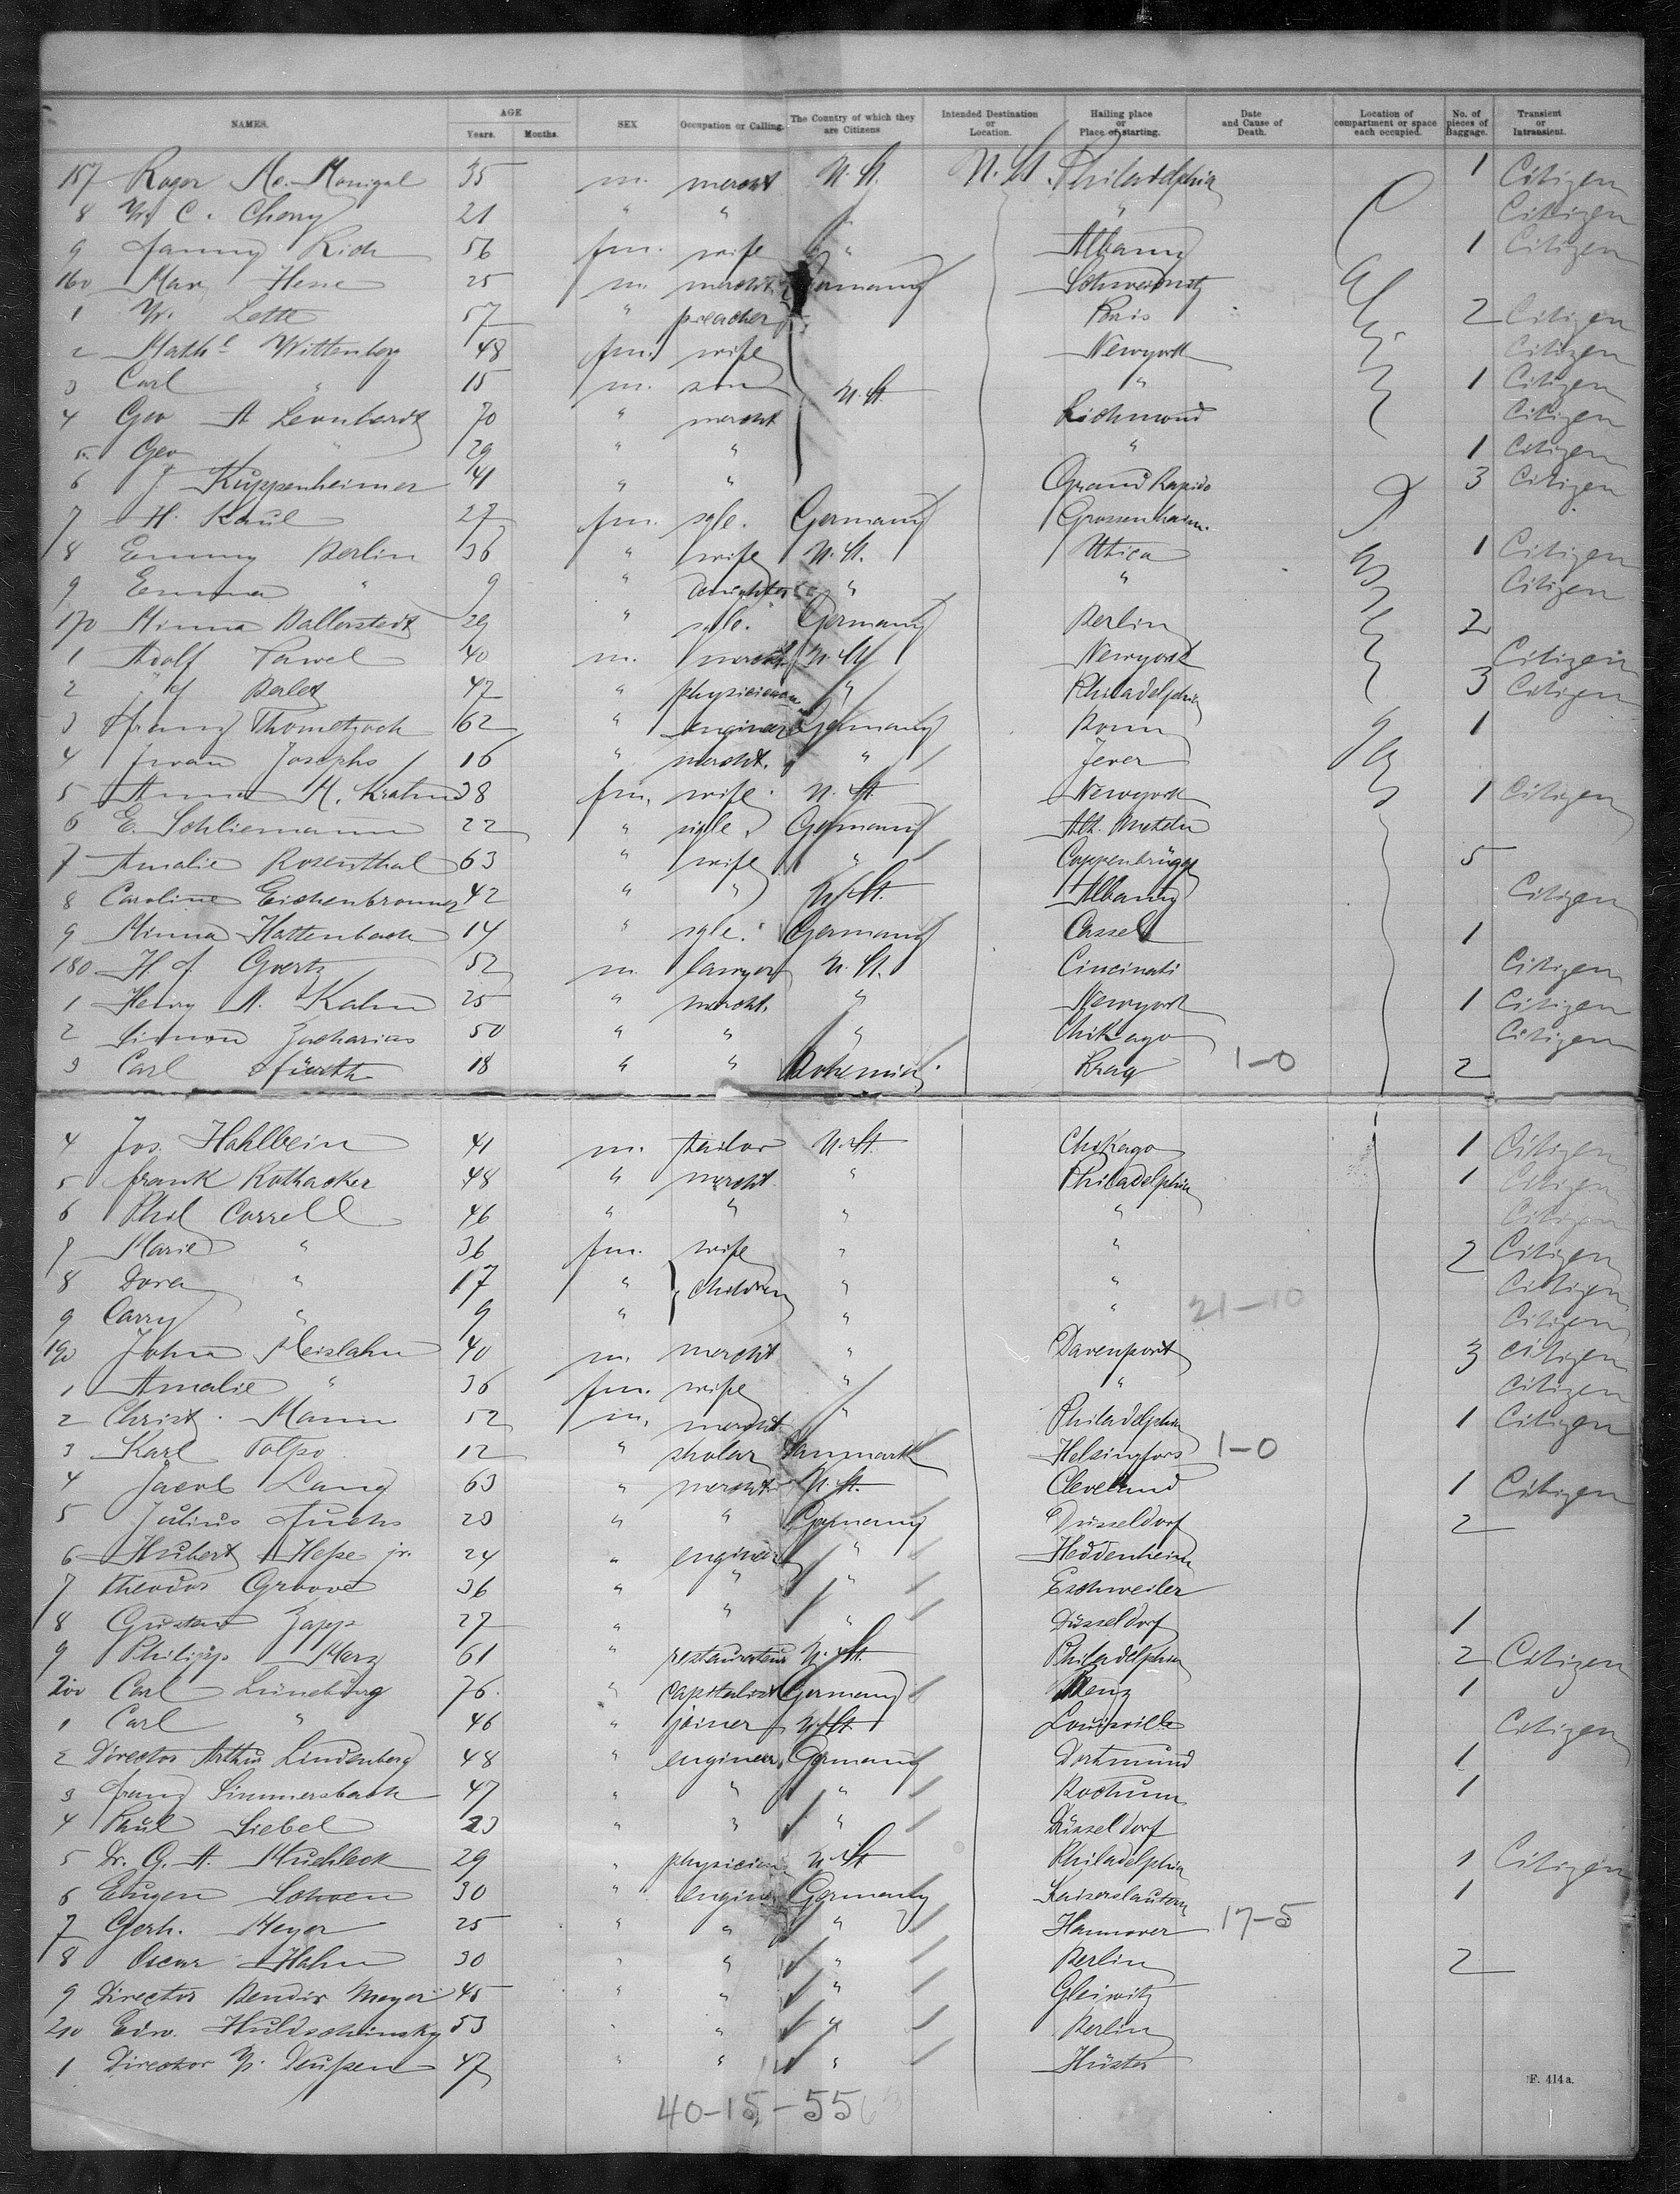 NAMES. AGE Years. Months. SEX Occupation or Calling. The Country of which they are Citizens Intended Destination or Location. Hailing place or Place of starting. Date and Cause of Death. Location of compartment or space each occupied. No. of pieces of Baggage. Transient or Intransient.
157 Roger Mc. Monigal 35 m. mercht U. St. U. St. Philadelphia 1 Citizen
8 W. C. Cherry 21 " " " " Citizen
9 Fanny Rich 56 fm. wife " Albany 1 Citizen
160 Max Hesse 25 m. mercht. Germany
1 W. Lette 57 " preacher Paris 2 Citizen
2 Mathe Wittenberg 48 fm. wife Newyork Citizen
3 Carl " 15 m. son U. St. " 1 Citizen
4 Geo A Leonhardt 70 " mercht Richmond Citizen
5 Geo " 29 " " " 1 Citizen
6 J. Kuppenheimer 41 " " Grand Rapids 3 Citizen
7 H. Kaul 27 fm. sgle. Germany Grossenhain.
8 Emmy Berlin 36 " wife U. St. Utica 1 Citizen
9 Emma " 9 " daughter " " Citizen
170 Minna Ballerstedt 29 " sgle. Germany Berlin 2
1 Adolf Pawel 40 m. mercht. U. St Newyork Citizen
2 Berlet 47 " physician " Philadelphia 3 Citizen
3 Franz Thometzoch 62 " engineer Germany Bonn 1
4 Iwan Josephs 16 " mercht. " Jever
5 Anna M. Krahn 38 fm. wife U. St Newyork 1 Citizen
6 E. Schliemann 22 " sgle. Germany Alt.
7 Amalie Rosenthal 63 " wife " Coppenbrügge 5
8 Caroline Eichenbronner 42 " " U. St. Albany Citizen
9 Minna Hattenbach 14 " sgle. Germany Cassel 1
180 H. J. Goertz 52 m. lawyer U. St. Cincinati Citizen
1 Henry M. Kahn 25 " mercht. " Newyork 1 Citizen
2 Simon Zacharias 50 " " " Chikago Citizen
3 Carl Fürth 18 " " Bohemia Prag 1-0 2
4 Jos. Hahlbein 41 m. tailor U. St. Chikago 1 Citizen
5 Frank Rothacker 48 " mercht. " Philadelphia 1 Citizen
6 Phil Correll 46 " " " " Citizen
7 Marie " 36 fm. wife " " 2 Citizen
8 Dora " 17 " children " " Citizen
9 Carry " 9 " " " 21-10 Citizen
190 John Meislahn 40 m. mercht " Davenport 3 Citizen
1 Amalie " 36 fm. wife " " Citizen
2 Christ. Mann 52 m. mercht " Philadelphia 1 Citizen
3 Karl Tolpo 12 " sholar Danmark Helsingfors 1-0
4 Jacob Lang 63 " mercht U. St. Cleveland 1 Citizen
5 Julius Fuchs 23 " " Germany Düsseldorf 2
6 Hubert Hesse jr. 24 " engineer " Heddenheim
7 Theodor Groove 36 " " " Eschweiler
8 Gustav Zapp 27 " " " Düsseldorf 1
9 Philipp Merz 61 " restaurateur U. St. Philadelphia 2 Citizen
200 Carl Lüneburg 76 " capitalist Germany 1
1 Carl " 46 " joiner U. St Louisville Citizen
2 Director Arthur Lindenberg 48 " engineer Germany Dortmund 1
3 Franz Simmersbach 47 " " " Bochum 1
4 Paul Siebel 23 " " " Düsseldorf
5 Dr. G. A. Muehleck 29 " physician U. St Philadelphia 1 Citizen
6 Eugen 30 " engineer Germany Kaiserslautern 1
7 Gerh. Meyer 25 " " " Hannover 17-5
8 Oscar Hahn 30 " " " Berlin 2
9 Director Bendix Meyer 45 " " " Gleiwitz
210 Edw. Huldschinsky 53 " " " Berlin
1 Director W. Deussen 47 " " " Hüsten
F. 414a.
40-15-55